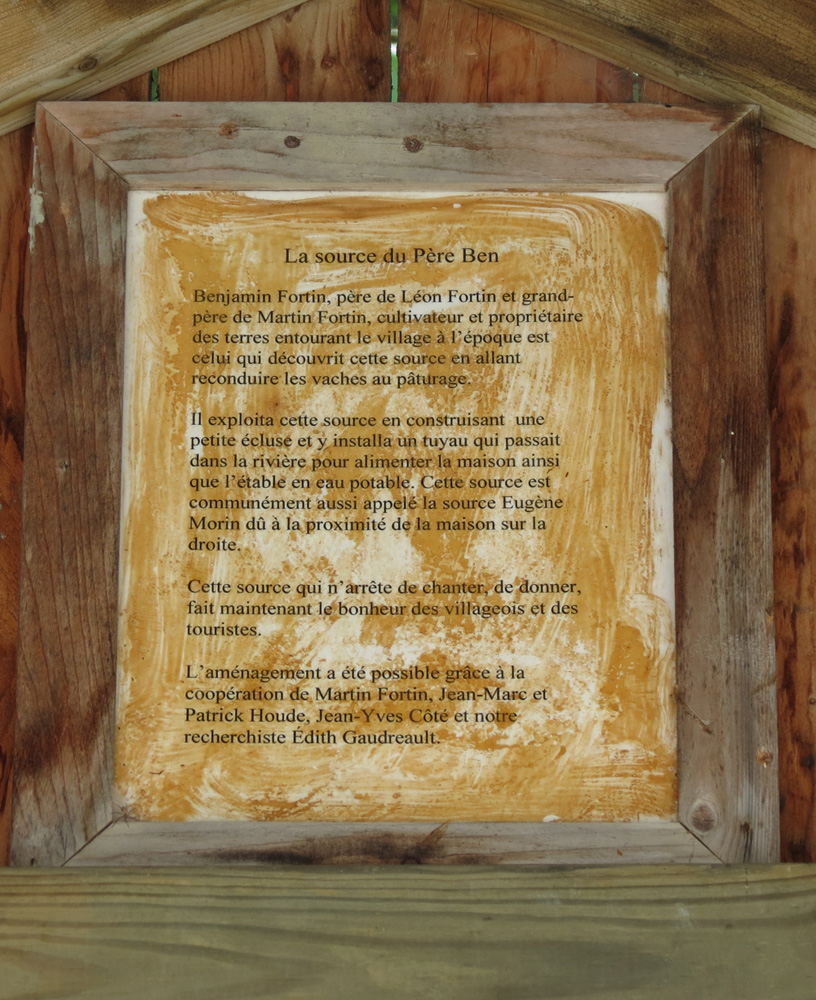 La source du Père Ben
Benjamin Fortin, père de Léon Fortin et grand-
père de Martin Fortin, cultivateur et propriétaire
des terres entourant le village à l'époque est
celui qui découvrit cette source en allant
reconduire les vaches au pâturage.
Il exploita cette source en construisant une
petite écluse et y installa un tuyau qui passait
dans la rivière pour alimenter la maison ainsi
que l'étable en eau potable. Cette source est
communément aussi appelé la source Eugène
Morin dû à la proximité de la maison sur la
droite.
Cette source qui n'arrête de chanter, de donner,
fait maintenant le bonheur des villageois et des
touristes.
L'aménagement a été possible grâce à la
coopération de Martin Fortin, Jean-Marc et
Patrick Houde, Jean-Yves Côté et notre
recherchiste Édith Gaudreault.